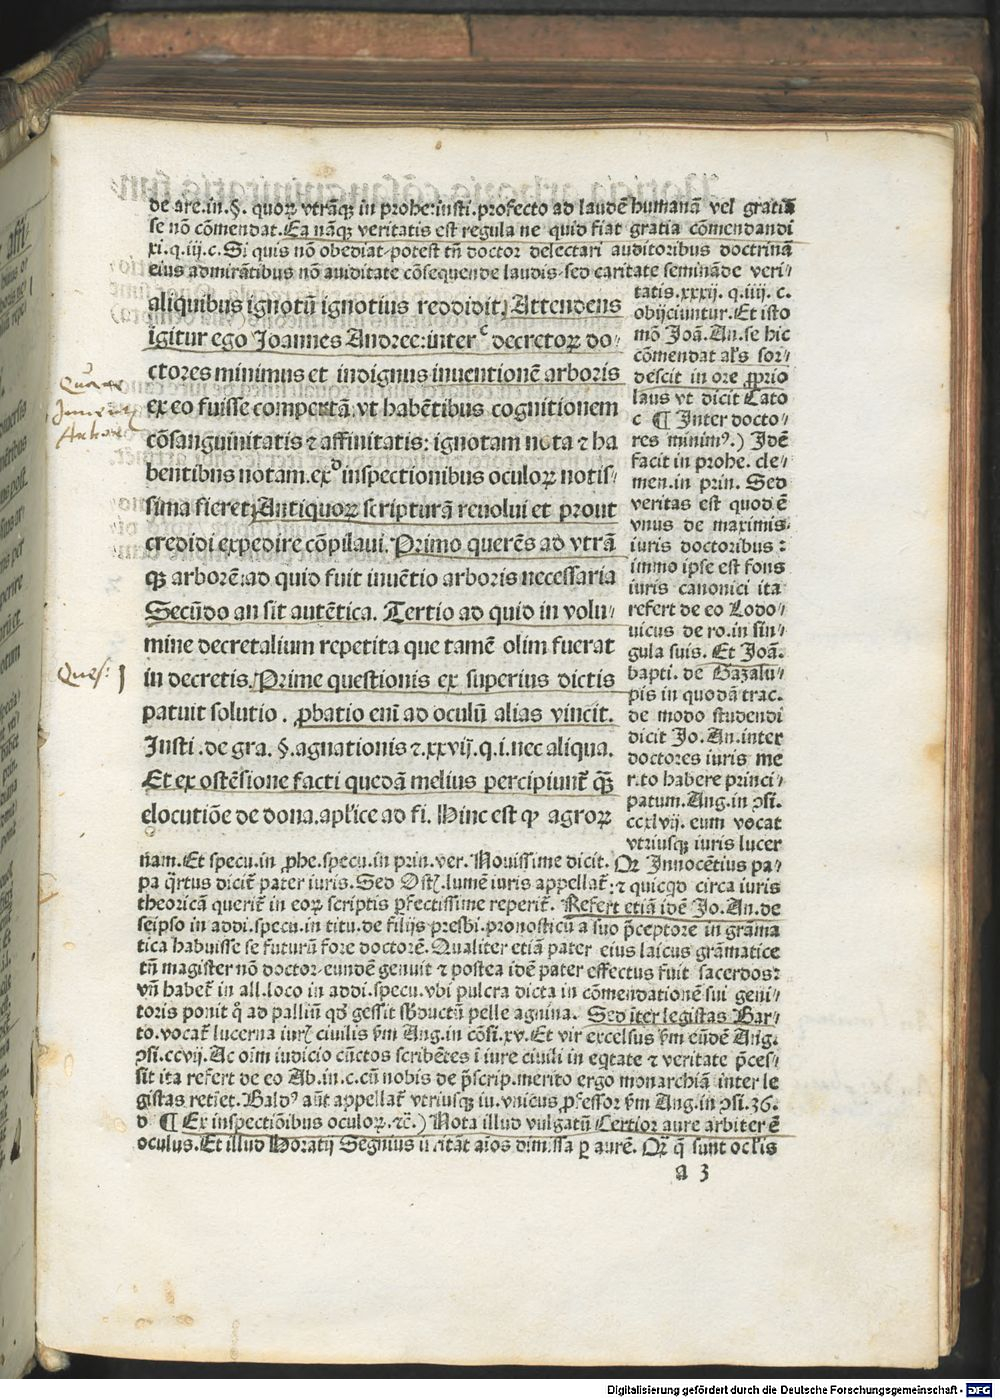 de are.in.§. quoꝝ vtrãqꝫ in prohe:insti.profecto ad laudẽ humanã vel gratiã
se nõ cõmendat. Ea nãqꝫ veritatis est regula ne quid fiat gratia cõmendandi
xi.q.iii.c. Si quis nõ obediat-potest tñ doctor delectari auditoribus doctrinã
eius admirãtibus nõ auiditate cõsequende laudis-sed caritate seminãde veri/
tatis.xxxij. q.iiij. c.
obijciuntur. Et isto
mõ Joã. An. se hic
cõmendat al's sor/
descit in ore ꝓprio
laus vt dicit Cato
c ¶ Inter docto/
res minimꝰ.) Idẽ
facit in prohe. cle/
men.in prin. Sed
veritas est quod ẽ
vnus de maximis
iuris doctoribus :
immo ipse est fons
iuris canonici ita
refert de eo Lodo/
uicus de ro.in sin/
gula suis. Et Joã.
bapti. de Gazalu/
pis in quodã trac.
de modo studendi
dicit Jo. An. inter
doctores iuris me
r.to habere princi/
patum. Ang. in ꝯsi.
ccxlvij. eum vocat
vtriusqꝫ iuris lucer
aliquibus ignotũ ignotius reddidit. Attendens
igitur ego Joannes Andree: inter c decretoꝝ do/
ctores minimus et indignus inuentionẽ arboris
ex eo fuisse compertã: vt habẽtibus cognitionem
cõsanguinitatis ⁊ affinitatis: ignotam nota ⁊ ha
bentibus notam.ex d inspectionibus oculoꝝ notis/
sima fieret. Antiquoꝝ scripturã reuolui et prout
credidi expedire cõpilaui. Primo querẽs ad vtrã
qꝫ arborẽ: ad quid fuit inuẽtio arboris necessaria
Secũdo an sit autẽtica. Tertio ad quid in volu/
mine decretalium repetita que tamẽ olim fuerat
in decretis. Prime questionis ex superius dictis
patuit solutio . ꝓbatio eni ad oculũ alias vincit.
Insti .de gra. §.agnationis ⁊.xxvij.q.i.nec aliqua.
Et ex ostẽsione facti quedã melius percipiunt̃ qꝫ̃
elocutiõe de dona.apl'ice ad fi. Hinc est ꝙ agroꝝ
nam. Et specu.in ꝓhe.specu.in prin.ver. Nouissime dicit. Or̃ Innocẽtius pa/
pa q̃rtus dicit̃ pater iuris. Sed Ost̃.lumẽ iuris appellat̃: ⁊ quicqd circa iuris
theoricã querit̃ in eoꝝ scriptis ꝑfectissime reperit̃. Refert etiã idẽ Jo. An. de
seipso in addi.specu.in titu.de filijs presbi.pronosticũ a suo p̃ceptore in grãma
tica habuisse se futurũ fore doctorẽ. Qualiter etiã pater eius laicus grãmatice
tñ magister nõ doctor-eundẽ genuit ⁊ postea idẽ pater effectus fuit sacerdos:
vñ habet̃ in all.loco in addi.specu.vbi pulcra dicta in cõmendationẽ sui geni/
toris ponit q̃ ad palliũ qd̃ gessit sb̃ductũ pelle agnina. Sed iter legistas Bar/
to. vocat̃ lucerna iur̃ ciuilis ẽm Ang. in cõsi.xv. Et vir excelsus ẽm eũdẽ Ang.
ꝯsi.ccvij. Ac oĩm iudicio cũctos scribẽtes ĩ iure ciuili in eqtate ⁊ veritate p̃ces/
sit ita refert de eo Ab. in.c.cũ nobis de p̃scrip.merito ergo monarchiã inter le
gistas retiet. Baldꝰ aũt appellat̃ vtriusqꝫ iu.vnicus ꝓfessor ẽm Ang. in ꝯsi.36.
d ¶ Ex inspectiõibus oculoꝝ.⁊c̃.) Nota illud vulgatũ Certior aure arbiter ẽ
oculus. Et illud Horatij Segnius irritãt aĩos dimissa ꝑ aurẽ. Qr̃ q̃ sunt ocl'is
a 3
Ques: 1
Digitalisierung gefördert durch die Deutsche Forschungsgemeinschaft - DFG